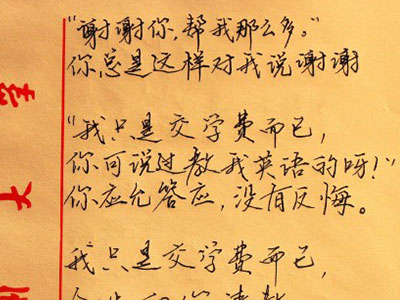 “谢谢你,帮我那么多。”
你总是这样对我说谢谢
“我只是交学费而已,
你可说过教我英语的呀!”
你应允答应,没有反悔。
我只是交学费而已,
大